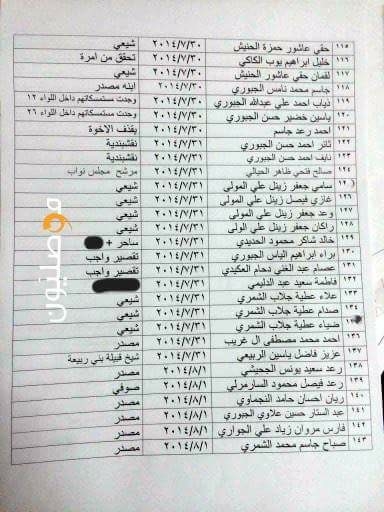 ١١٥ حقي عاشور حمزة الحنيش ٢٠١٤/٧/٣٠ شيعي
١١٦ خليل ابراهيم يوب الكاكي ٢٠١٤/٧/٣٠ تحقق من امرة
١١٧ لقمان حقي عاشور الحنيش ٢٠١٤/٧/٣٠ شيعي
١١٨ جاسم محمد نامس الجبوري ٢٠١٤/٧/٣٠ ابنه مصدر
١١٩ ذياب احمد علي عبدالله الجبوري ٢٠١٤/٧/٣٠ وجدت مستمسكاتهم داخل اللواء ١٢
١٢٠ ياسين خضير حسن الجبوري ٢٠١٤/٧/٣٠ وجدت مستمسكاتهم داخل اللواء ٢٦
١٢١ احمد رعد جاسم ٢٠١٤/٧/٣٠ يقذف الاخوة
١٢٢ ثائر احمد حسن الجبوري ٢٠١٤/٧/٣١ نقشبندية
١٢٣ نايف احمد حسن الجبوري ٢٠١٤/٧/٣١ نقشبندية
١٢٤ صالح فتحي ظاهر الحيالي ٢٠١٤/٧/٣١ مرشح مجلس نواب
سامي جعفر زينل علي المولى ٢٠١٤/٧/٣١ شيعي
١٢٦ غازي فيصل زينل علي المولى ٢٠١٤/٧/٣١ شيعي
١٢٧ وعد جعفر زينل علي المولى ٢٠١٤/٧/٣١ شيعي
١٢٨ راكان جعفر زينل علي الولى ٢٠١٤/٧/٣١ شيعي
١٢٩ خالد شاكر محمود الحديدي ٢٠١٤/٧/٣١ ساحر +
١٣٠ براء ابراهيم الياس الجبوري ٢٠١٤/٧/٣١ تقصير واجب
١٣١ عصام عبد الغني دحام العكيدي ٢٠١٤/٧/٣١ تقصير واجب
١٣٢ فاطمة سعيد عبد الدليمي ٢٠١٤/٧/٣١
١٣٣ علاء عطية جلاب الشمري ٢٠١٤/٧/٣١ شيعي
١٣٤ صدام عطية جلاب الشمري ٢٠١٤/٧/٣١ شيعي
ضياء عطية جلاب الشمري ٢٠١٤/٧/٣١ شيعي
١٣٦ احمد محمد مصطفى ال غريب ٢٠١٤/٧/٣١ مصدر
١٣٧ عزيز فاضل ياسين الربيعي ٢٠١٤/٧/٣١ شيخ قبيلة بني ربيعة
١٣٨ رعد سعيد يونس الجحيشي ٢٠١٤/٨/١ مصدر
١٣٩ رعد فيصل محمود السارمرلي ٢٠١٤/٨/١ صوفي
١٤٠ ريان احسان حامد النجماوي ٢٠١٤/٨/١ مصدر
١٤١ عبد الستار حسين علاوي الجبوري ٢٠١٤/٨/١ مصدر
١٤٢ فارس مروان زياد علي الجواري ٢٠١٤/٨/١ مصدر
١٤٣ صباح جاسم محمد الشمري ٢٠١٤/٨/١ مصدر
موصليون